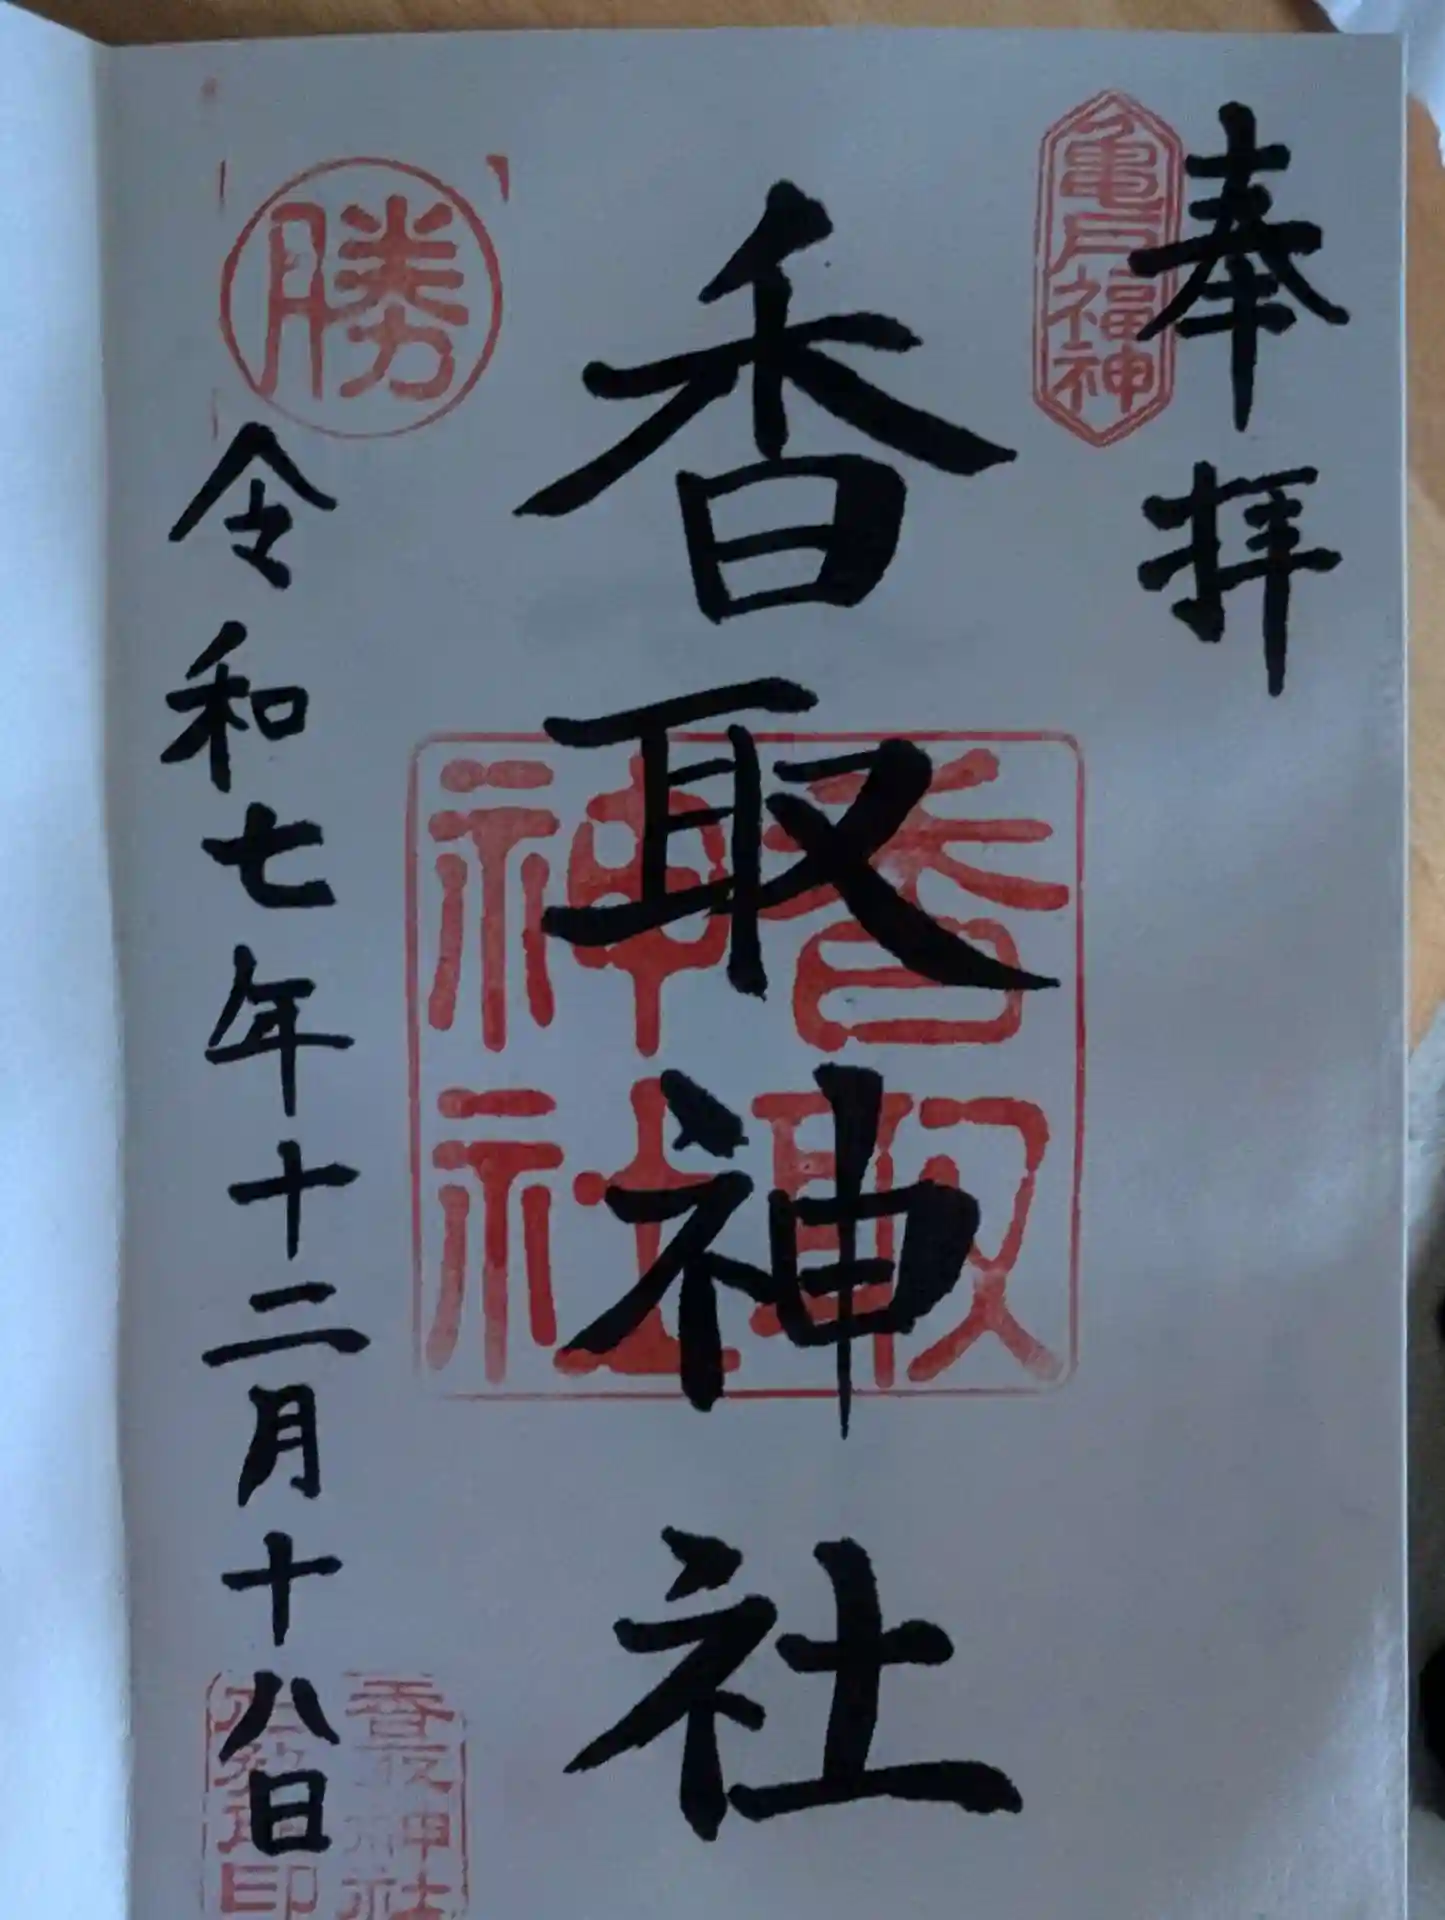 奉拝
亀戸福神
香取神社
香取神社
勝
令和七年十二月十八日
香取神社
社務所印